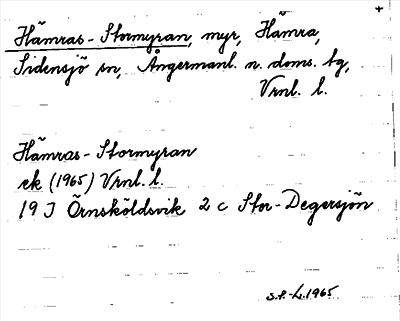 Hämras-Stormyran, myr, Hämra,
Sidensjö sn, Ångermanl. n. doms. tg,
Vrnl. l.
Hämras-Stormyran
ek (1965) Vrnl. l.
19 J Örnsköldsvik 2 c Stor-Degersjön
S.P.-L. 1965